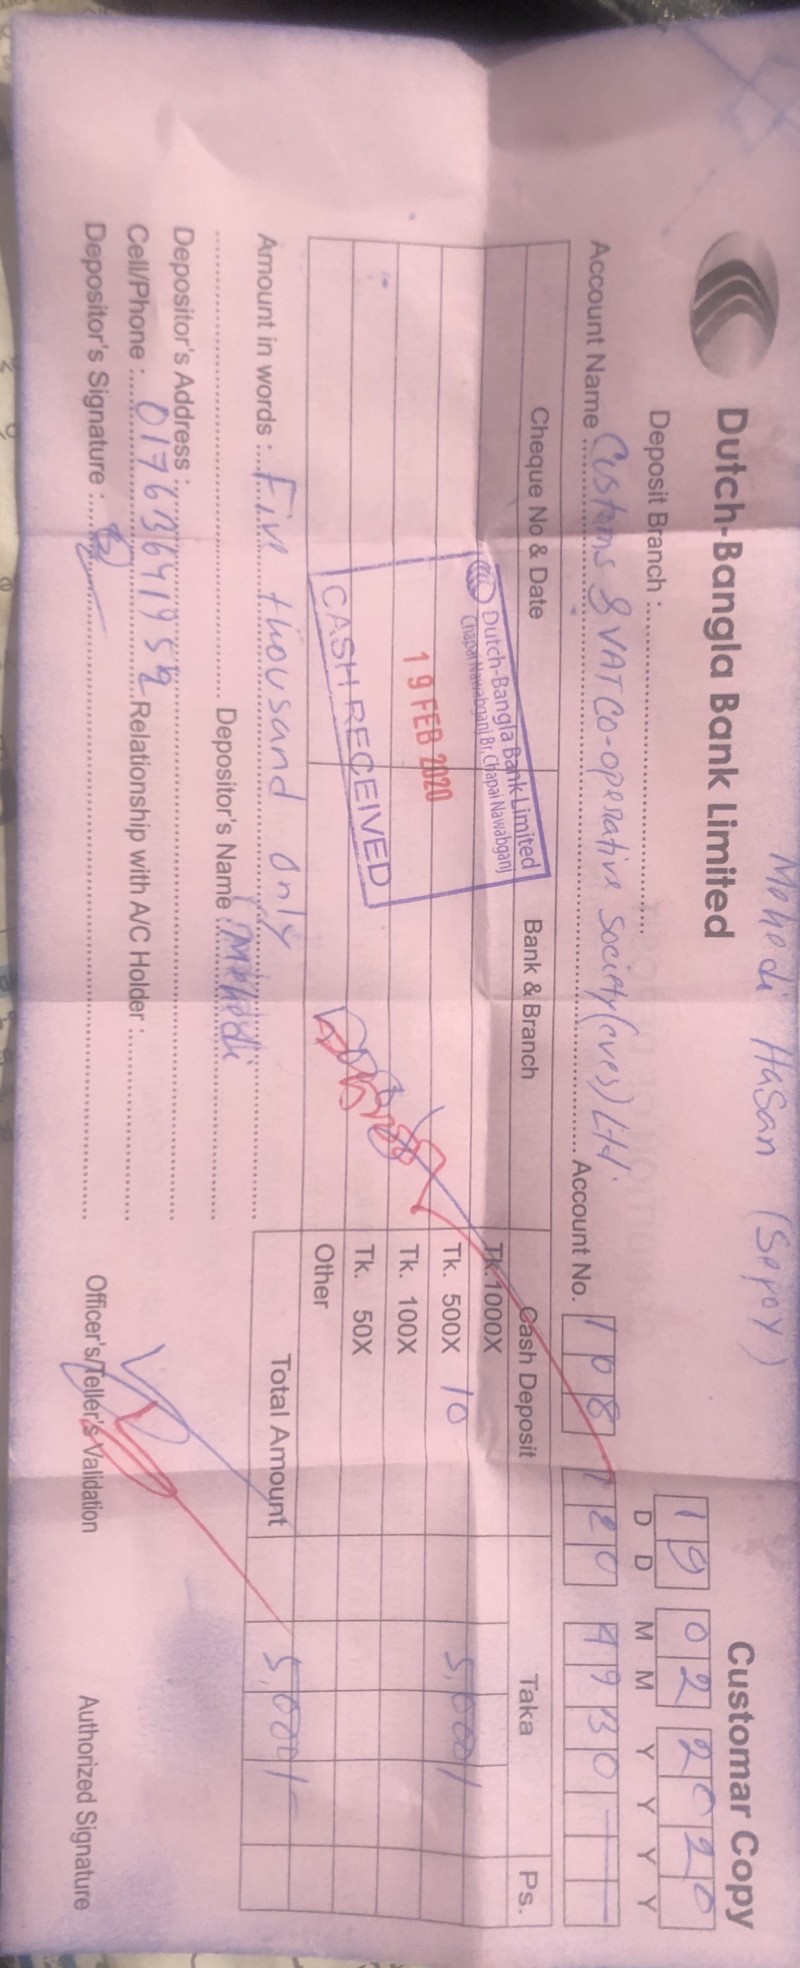 Mehedi Hasan (Sepoy)
Dutch-Bangla Bank Limited
Customar Copy
19 02 2020
D D M M Y Y Y Y
Deposit Branch :
Account Name Customs & VAT Co-operative Society (cves) Ltd.
Account No. 108 120 4930
Cheque No & Date Bank & Branch Cash Deposit Taka Ps.
Tk.1000X
Tk. 500X 10 5,000/
Tk. 100X
Tk. 50X
Other
Total Amount 5,000/-
Dutch-Bangla Bank Limited
Chapai Nawabganj Br, Chapai Nawabganj
19 FEB 2020
CASH RECEIVED
Amount in words : Five thousand only
Depositor's Name : Mehedi
Depositor's Address :
Cell/Phone : Relationship with A/C Holder :
Depositor's Signature :
Officer's/Teller's Validation
Authorized Signature